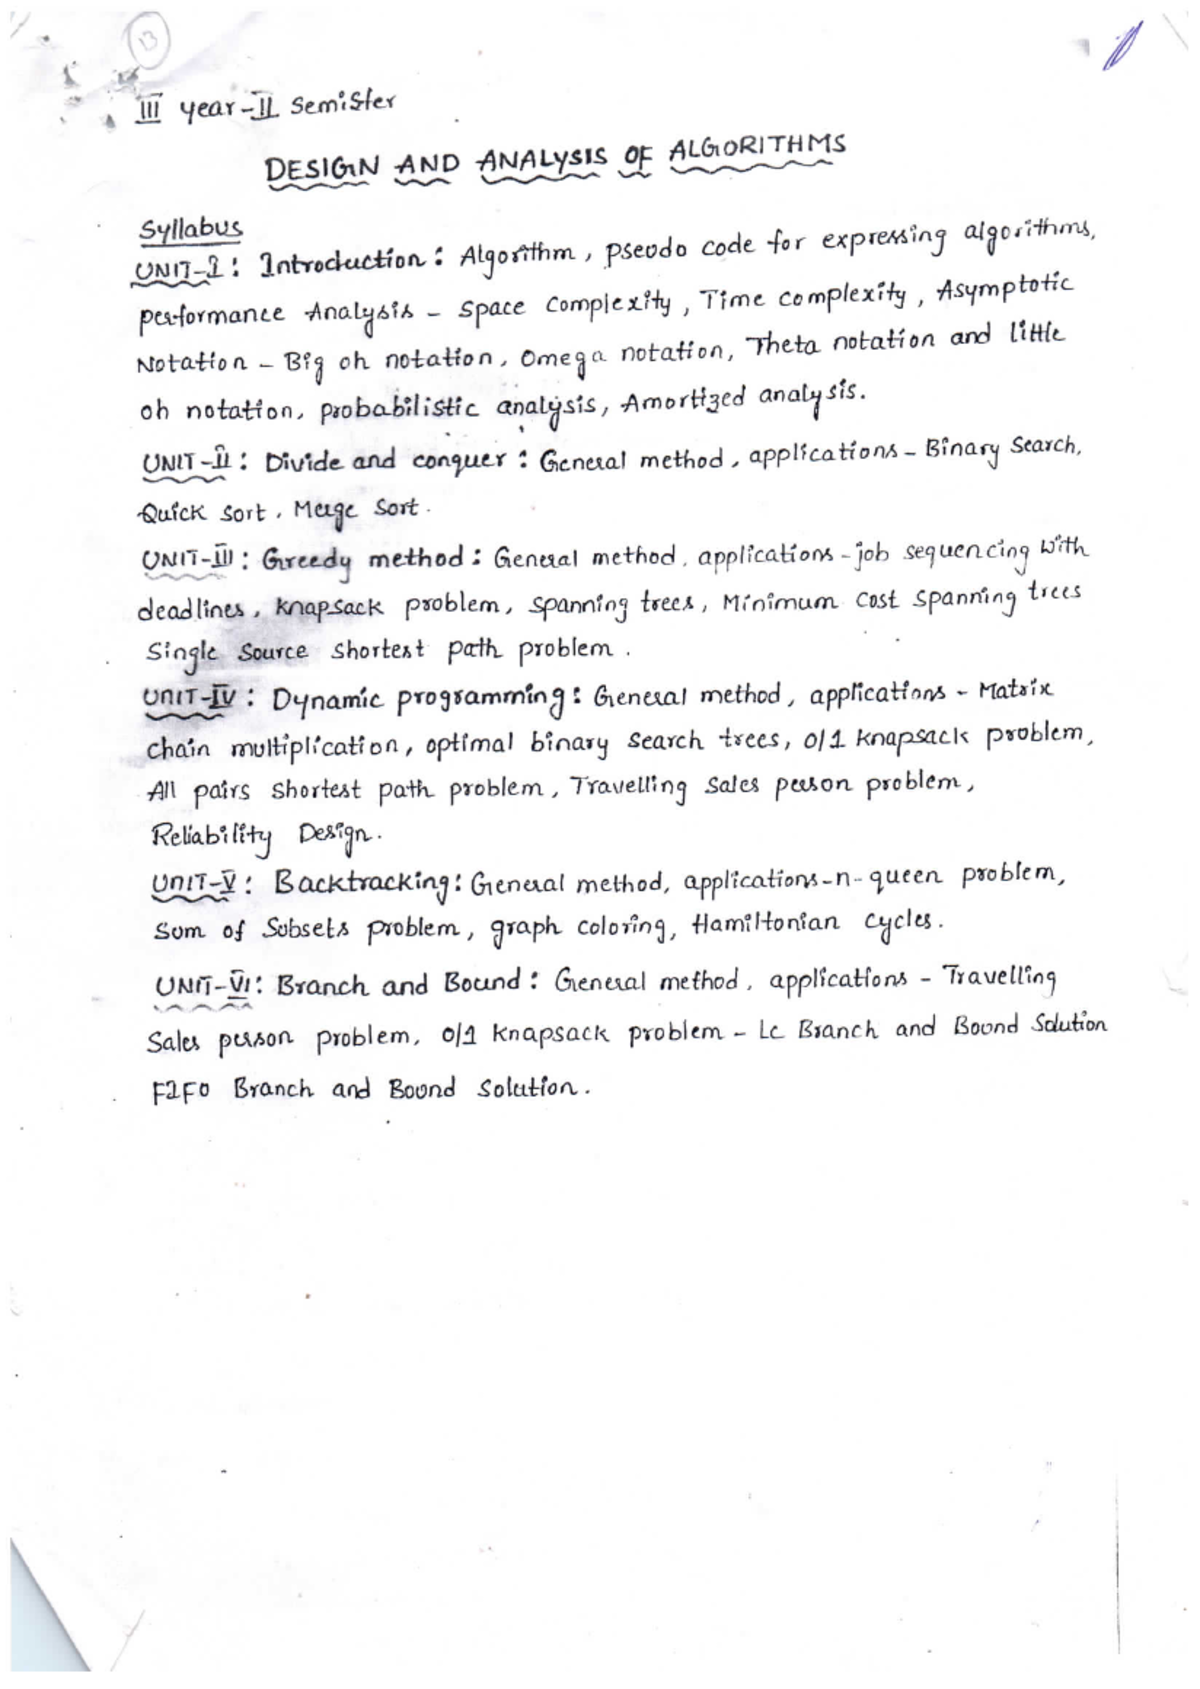 13
III year-II Semister
DESIGN AND ANALYSIS OF ALGORITHMS
Syllabus
UNIT-I: Introduction: Algorithm, pseudo code for expressing algorithms,
performance Analysis - Space complexity, Time complexity, Asymptotic
Notation - Big oh notation, Omega notation, Theta notation and little
oh notation, probabilistic analysis, Amortized analysis.
UNIT-II: Divide and conquer: General method, applications - Binary Search,
Quick sort, Merge Sort.
UNIT-III: Greedy method: General method, applications - job sequencing with
deadlines, knapsack problem, spanning trees, Minimum cost spanning trees
Single source shortest path problem.
UNIT-IV: Dynamic programming: General method, applications - Matrix
chain multiplication, optimal binary search trees, 0/1 knapsack problem,
All pairs shortest path problem, Travelling sales person problem,
Reliability Design.
UNIT-V: Backtracking: General method, applications-n-queen problem,
Sum of Subsets problem, graph coloring, Hamiltonian cycles.
UNIT-VI: Branch and Bound: General method, applications - Travelling
Sales person problem, 0/1 knapsack problem - LC Branch and Bound Solution
FIFO Branch and Bound solution.